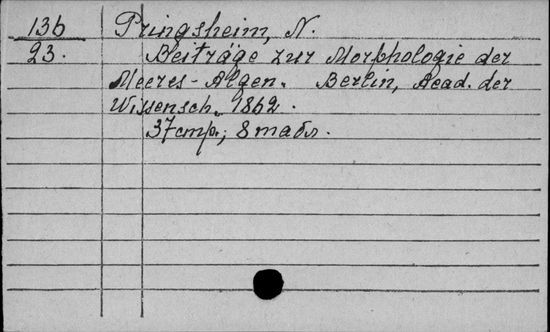 136 Pringsheim, N.
23. Beiträge zur Morphologie der
Meeres-Algen. Berlin, Acad. der
Wissensch. 1862.
37 стр.; 8 табл.